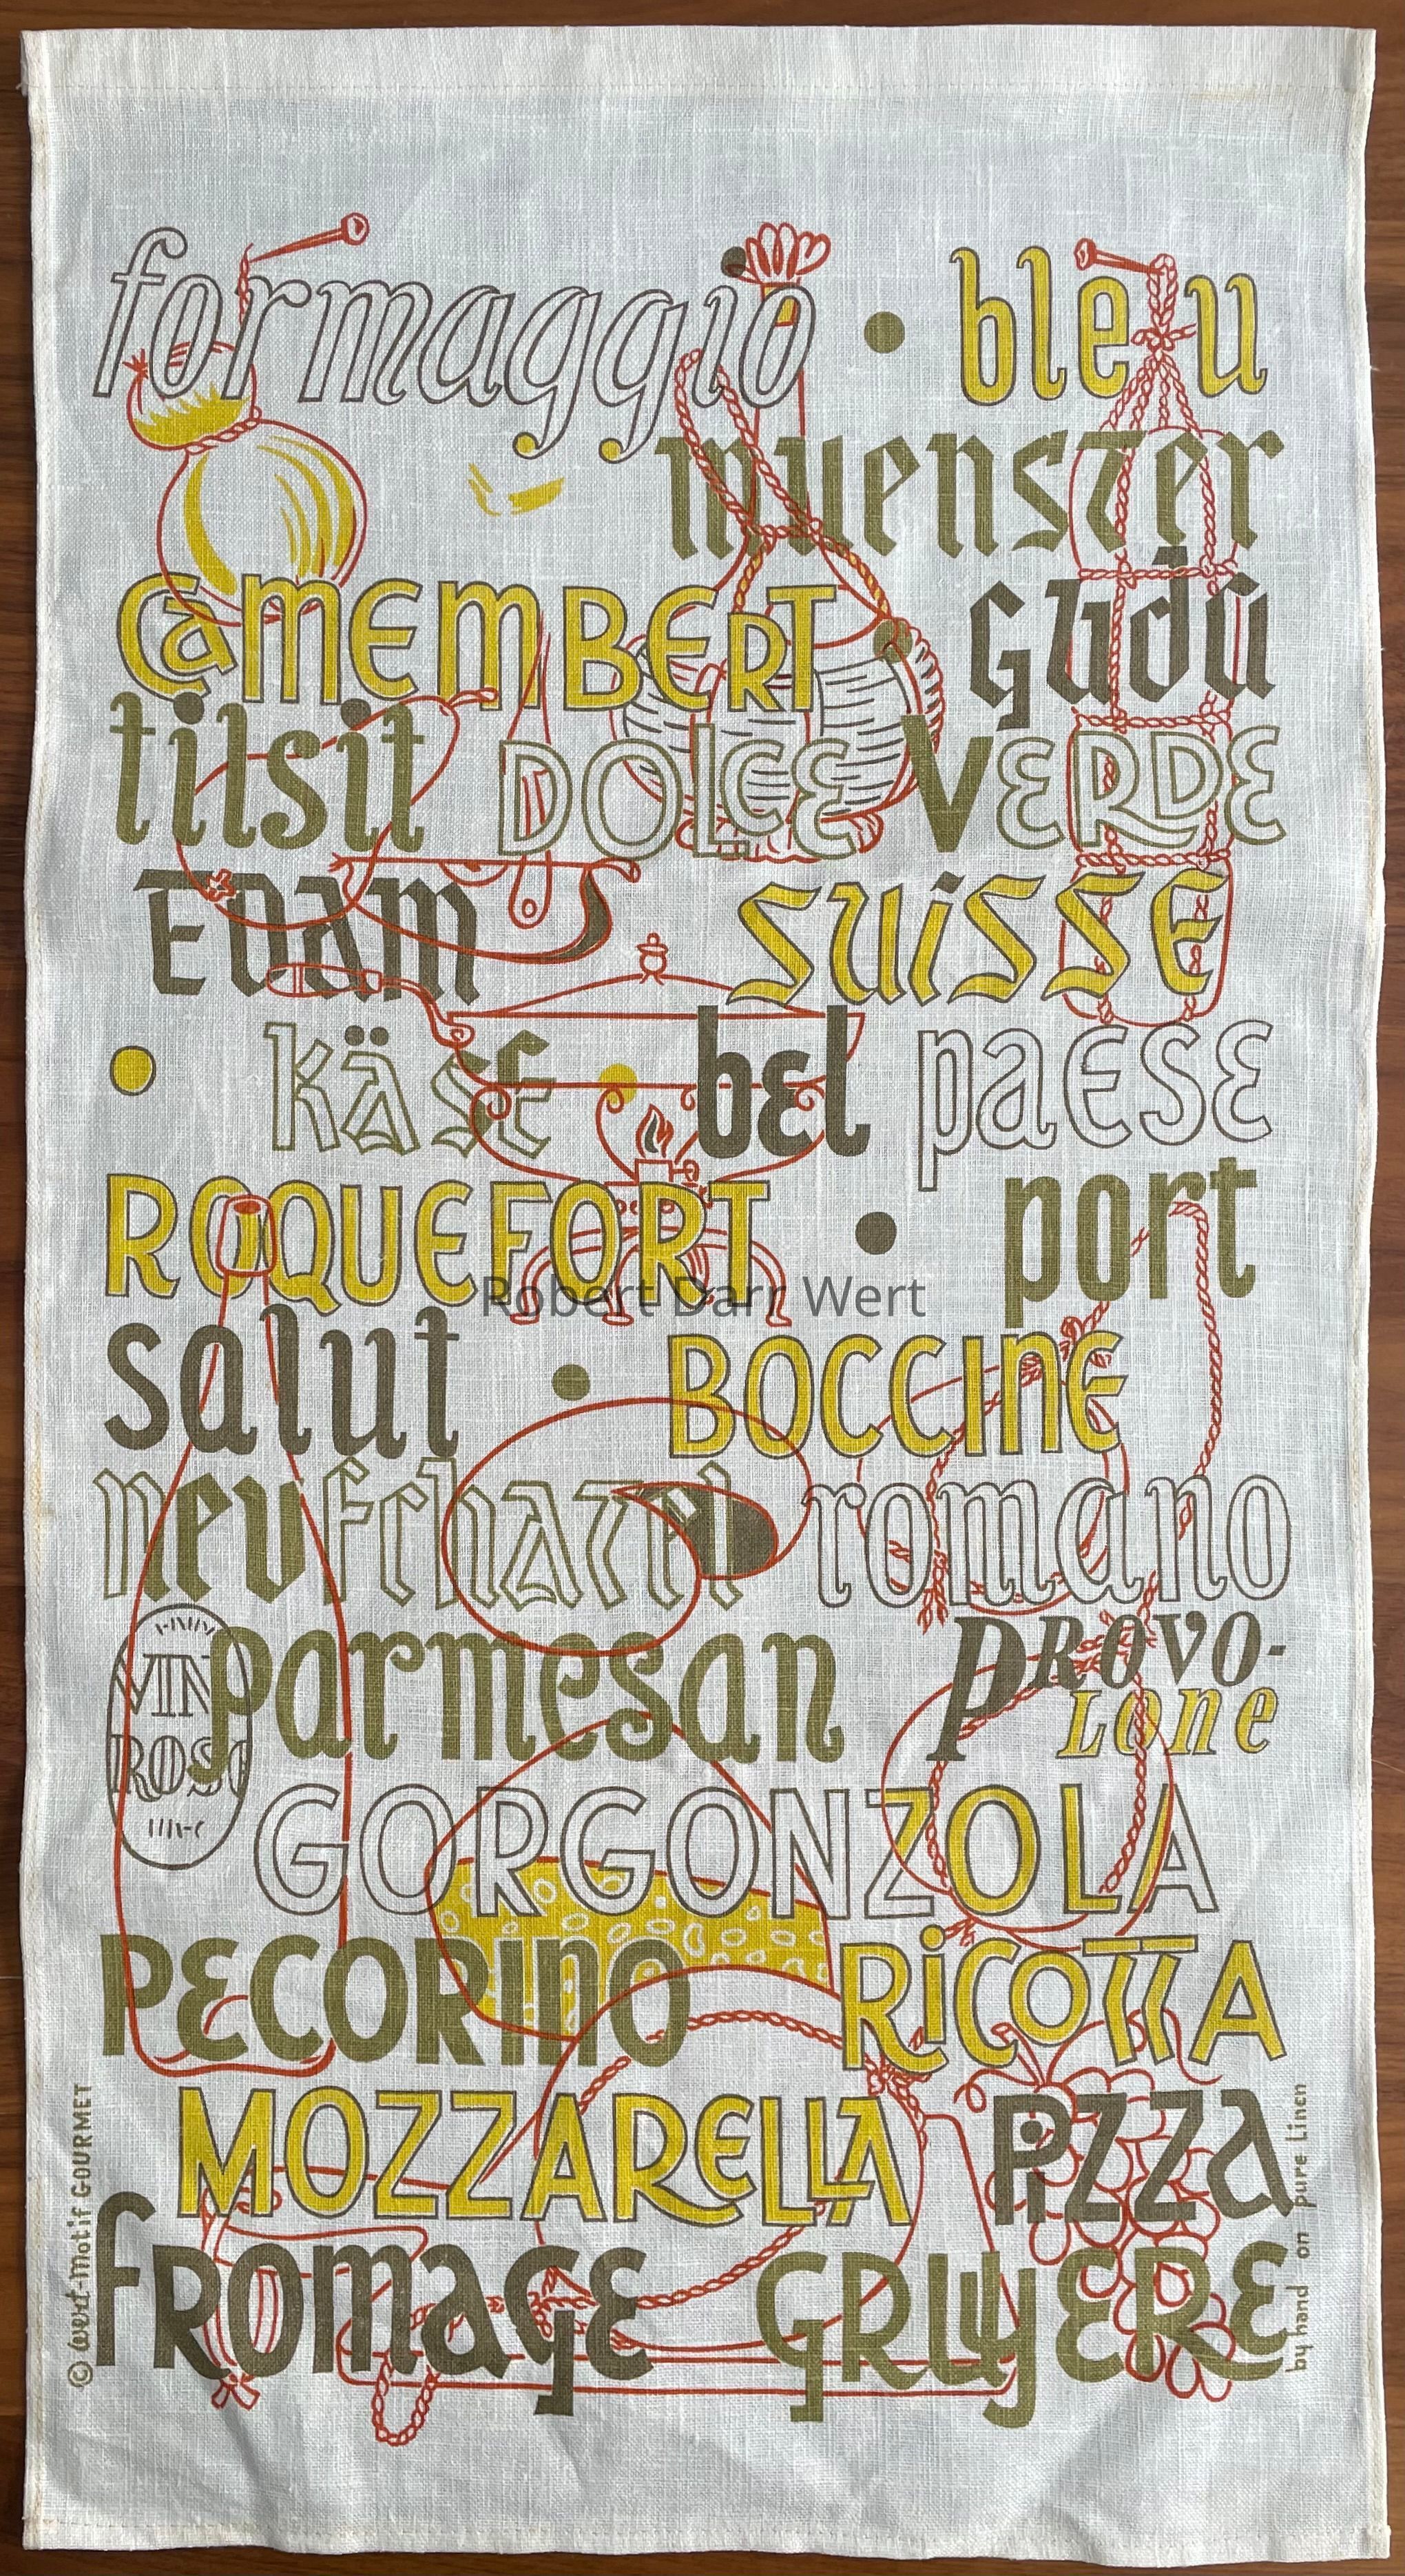 formaggio • bleu
muenster
CamEMBERT Guda
tilsit DOLCE VERDE
EDAM SUiSSE
• KÄSE • bel paESE
ROQUEFORT • port
Robert Darr Wert
salut • BOCCINE
neufchatel romano
parmesan PROVO-
LOne
VIN
ROSE
GORGONZOLA
PECORINO RiCOTTA
MOZZARELLA PiZZa
fROmagE GRUyERE
© wert-motif GOURMET
by hand on pure Linen